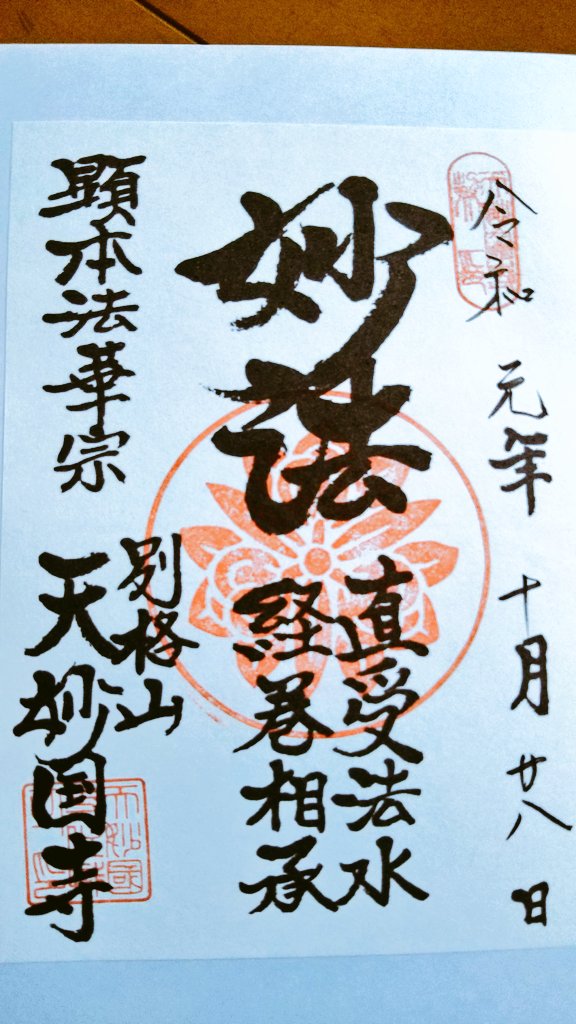 令和元年十月廿八日
妙法
直受法水
経巻相承
顕本法華宗
別格山
天妙国寺